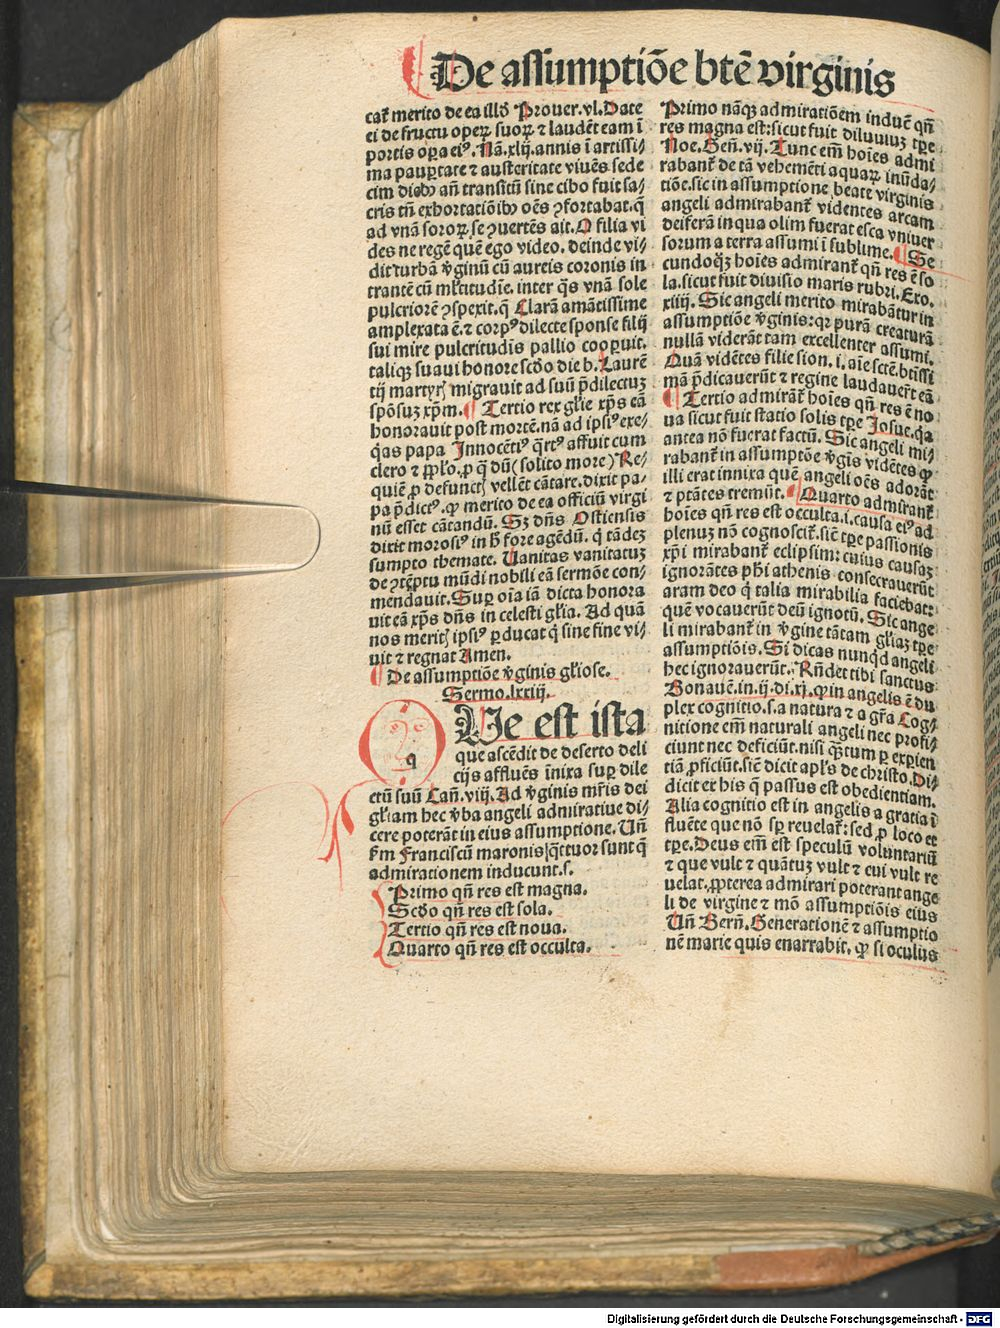 De assumptiōe btē virginis
cat᷑ merito de ea illḋ Prouer.vl. Date
ei de fructu operꝝ suoꝝ ⁊ laudēt eam ī
portis oꝑa eiꝰ. Nā.xlij.annis ī artissi/
ma paupꝛtate ⁊ austeritate viuēs sede
cim diebꝯ añ transitū sine cibo fuit sa/
cris tñ exhortatiōibꝯ oēs ꝯfortabat.q̇
ad vnā soroꝝ.se ꝯuertēs ait.O filia vi
des ne regē quē ego video. deinde vi/
dit turbā v̇ginū cū aureis coronis in
trantē cū ml̄titudīe. inter q̄s vnā sole
pulcriorē ꝯspexit.q̄ Clarā amātissime
amplexata ē.⁊ corpꝰ dilecte sponse filij
sui mire pulcritudīs pallio cooꝑuit.
taliqꝫ suaui honore scḋo die b. Laurē
tij martyrꝭ migrauit ad suū p̄dilectuꝫ
spōsuꝫ xp̄m. ¶ Tertio rex gl̄ie xp̄s eā
honorauit post mortē.nā ad ipsiꝰ exe/
q̇as papa Innocētiꝰ q̇rtꝰ affuit cum
clero ⁊ pp̄lo.ꝓ q̄ dū (solito more) Re/
quiē ꝓ defunctꝭ vellēt cātare.dixit pa/
pa p̄dictꝰ.ꝙ merito de ea officiū virgi
nū esset cātandū. Sꝫ dn̄s Ostiensis
dixit morosiꝰ in h̄ fore agēdū. q̇ tādeꝫ
sumpto themate. Uanitas vanitatuꝫ
de ꝯtēptu mūdi nobili eā sermōe con/
mendauit. Suꝑ oīa iā dicta honora
uit eā xp̄s dn̄s in celesti gl̄ia. Ad quā
nos meritꝭ ipsiꝰ ꝑducat q̇ sine fine vi/
uit ⁊ regnat Amen.
¶ De assumptiōe v̇ginis gl̄iose.
Sermo.lxxiij.
q Ue est ista
que ascēdit de deserto deli
cijs affluēs īnixa suꝑ dile
ctū suū Cañ.viij. Ad v̇ginis mr̄is dei
gl̄iam hec v̇ba angeli admiratiue di/
cere poterāt in eius assumptione. Uñ
ẜm Franciscū maronis q̇ttuor sunt q̄
admirationem inducunt.s.
Primo qñ res est magna.
Scḋo qñ res est sola.
Tertio qñ res est noua.
Quarto qñ res est occulta.
Primo nāqꝫ admiratiōem induc̄ qñ
res magna est:sicut fuit diluuiuꝫ tꝑe
Noe. Geñ. vij. Tunc em̄ hoīes admi
rabant᷑ de tā vehemēti aquaꝝ inūda/
tiōe.sic in assumptione beate virginis
angeli admirabant᷑ videntes arcam
deiferā in qua olim fuerat esca vniuer
sorum a terra assumi ī sublime. ¶ Se
cundoq̇ꝫ hoīes admirant᷑ qñ res ē so
la.sicut fuit diuisio maris rubri. Exo.
xiiij. Sic angeli merito mirabātur in
assumptiōe v̇ginis:qꝛ purā creaturā
nullā viderāt tam excellenter assumi.
Quā vidētes filie sion. i. aīe sct̄ē.btīssi
mā p̄dicauerūt ⁊ regine laudauer̄t eā
¶ Tertio admirāt᷑ hoīes qñ res ē no
ua sicut fuit statio solis tꝑe Josue.q̇a
antea nō fuerat factū. Sic angeli mi/
rabant᷑ in assumptōe v̇gīs vidētes ꝙ
illi erat innixa quē angeli oēs adorāt
⁊ ptātes tremūt. ¶ Quarto admirant᷑
hoīes qñ res est occulta.i.causa eiꝰ ad
plenuꝫ nō cognoscit᷑.sic̄ tꝑe passionis
xp̄i mirabant᷑ eclipsim: cuius causaꝫ
ignorātes ph̄i athenis consecrauerūt
aram deo q̇ talia mirabilia faciebat:
quē vocauerūt deū ignotū. Sic ange
li mirabant᷑ in v̇gine tātam gl̄iaꝫ tꝑe
assumptiōis. Si dicas nunqḋ angeli
hec ignorauerūt. Rñdet tibi sanctus
Bonauē.in.ij.di.xj.ꝙ in angelis ē du
plex cognitio.s.a natura ⁊ a gr̄a Cog/
nitione em̄ naturali angeli nec profi/
ciunt nec deficiūt.nisi q̄ꝫtum ꝑ exꝑien
tiā ꝓficiūt.sic̄ dicit apl̄s de christo. Di/
dicit ex his q̄ passus est obedientiam.
Alia cognitio est in angelis a gratia ī
fluēte que nō sꝑ reuelat᷑: sed ꝓ loco et
tꝑe. Deus em̄ est speculū voluntariū
⁊ que vult ⁊ quātuꝫ vult ⁊ cui vult re
uelat.ꝓpterea admirari poterant ange
li de virgine ⁊ mō assumptiōis eius
Uñ Berñ. Generationē ⁊ assumptio
nē marie quis enarrabit. ꝙ si oculus
Digitalisierung gefördert durch die Deutsche Forschungsgemeinschaft - DFG